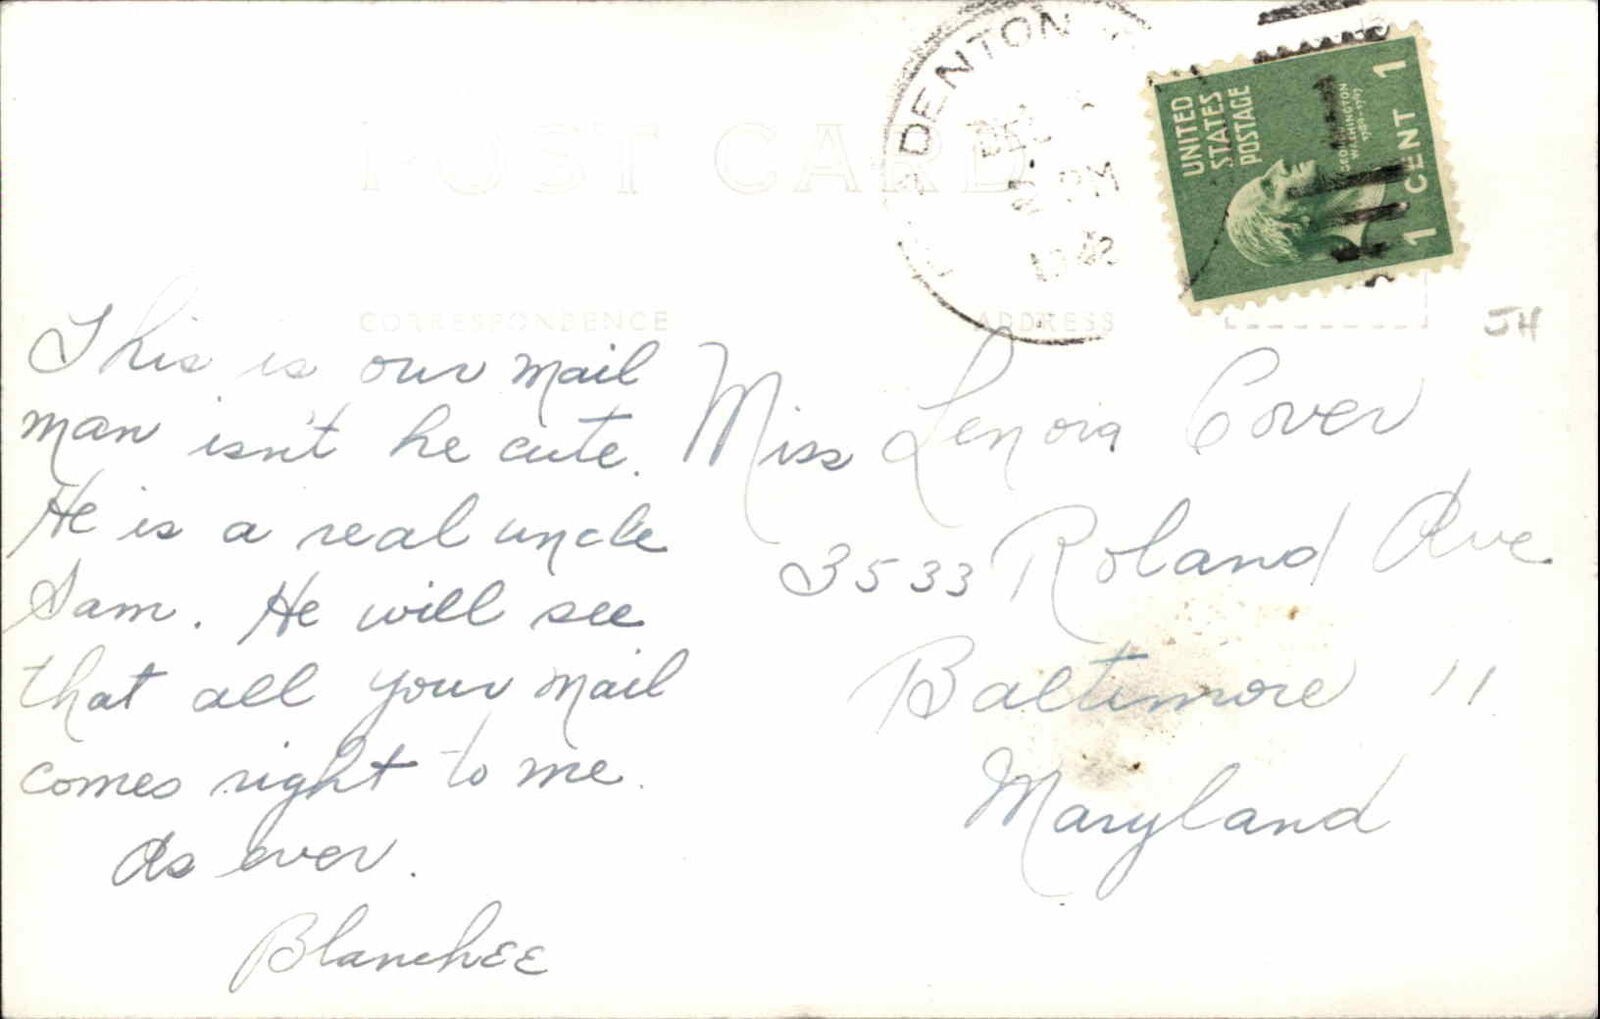 POST CARD
DENTON
DEC
PM
1942
UNITED
STATES
POSTAGE
GEORGE
WASHINGTON
1789-1797
1 CENT 1
CORRESPONDENCE
ADDRESS
JH
This is our mail
man isn't he cute.
He is a real uncle
Sam. He will see
that all your mail
comes right to me.
As ever.
Blanchee
Miss Lenora Cover
3533 Roland Ave
Baltimore 11
Maryland